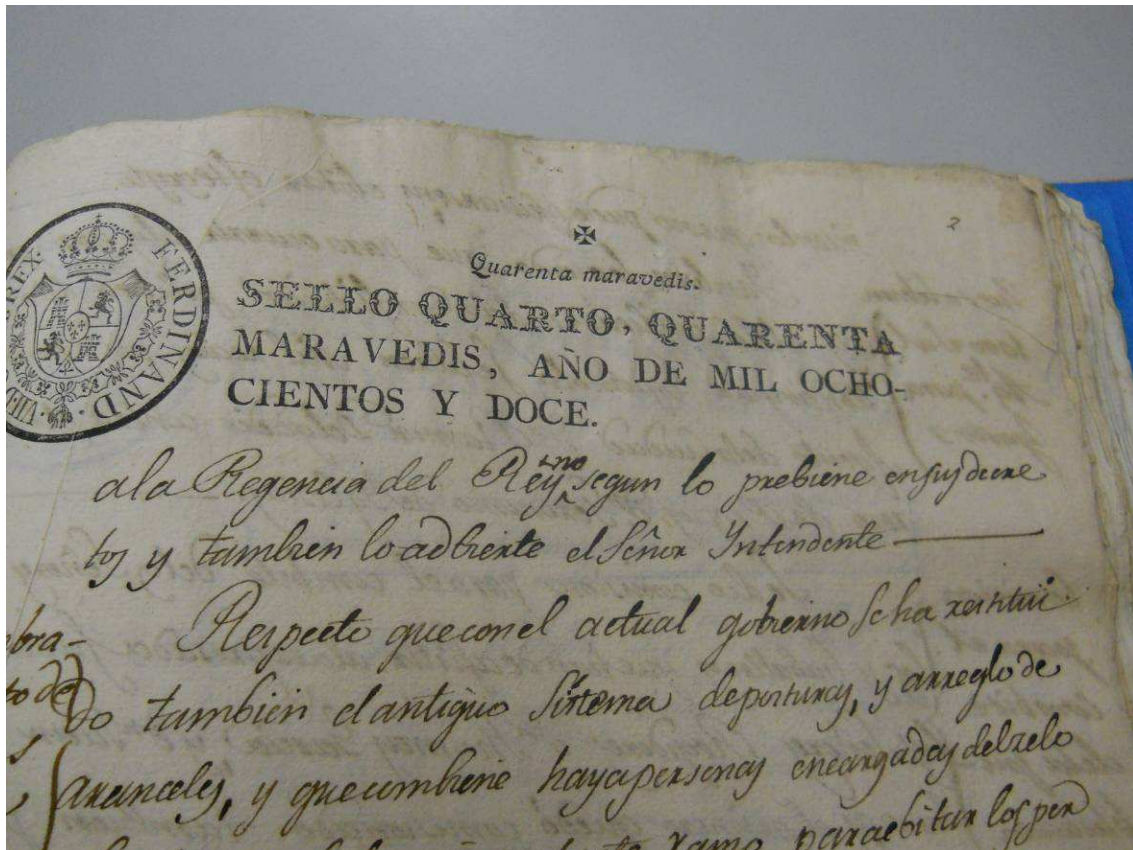 2
Quarenta maravedis.
SELLO QUARTO, QUARENTA
MARAVEDIS, AÑO DE MIL OCHO-
CIENTOS Y DOCE.
FERDINAND. VII. D. REX.
ala Regencia del Reyno segun lo prebiene ensus decre
tos y tambien loadbierte el Señor Yntendente
Respecto que con el actual gobierno se ha restitui-
do tambien el antiguo sistema deposturas, y arreglo de
bra-
to de
aranceles, y que combiene haya personas encargadas del zelo
ramo para ebitar los per